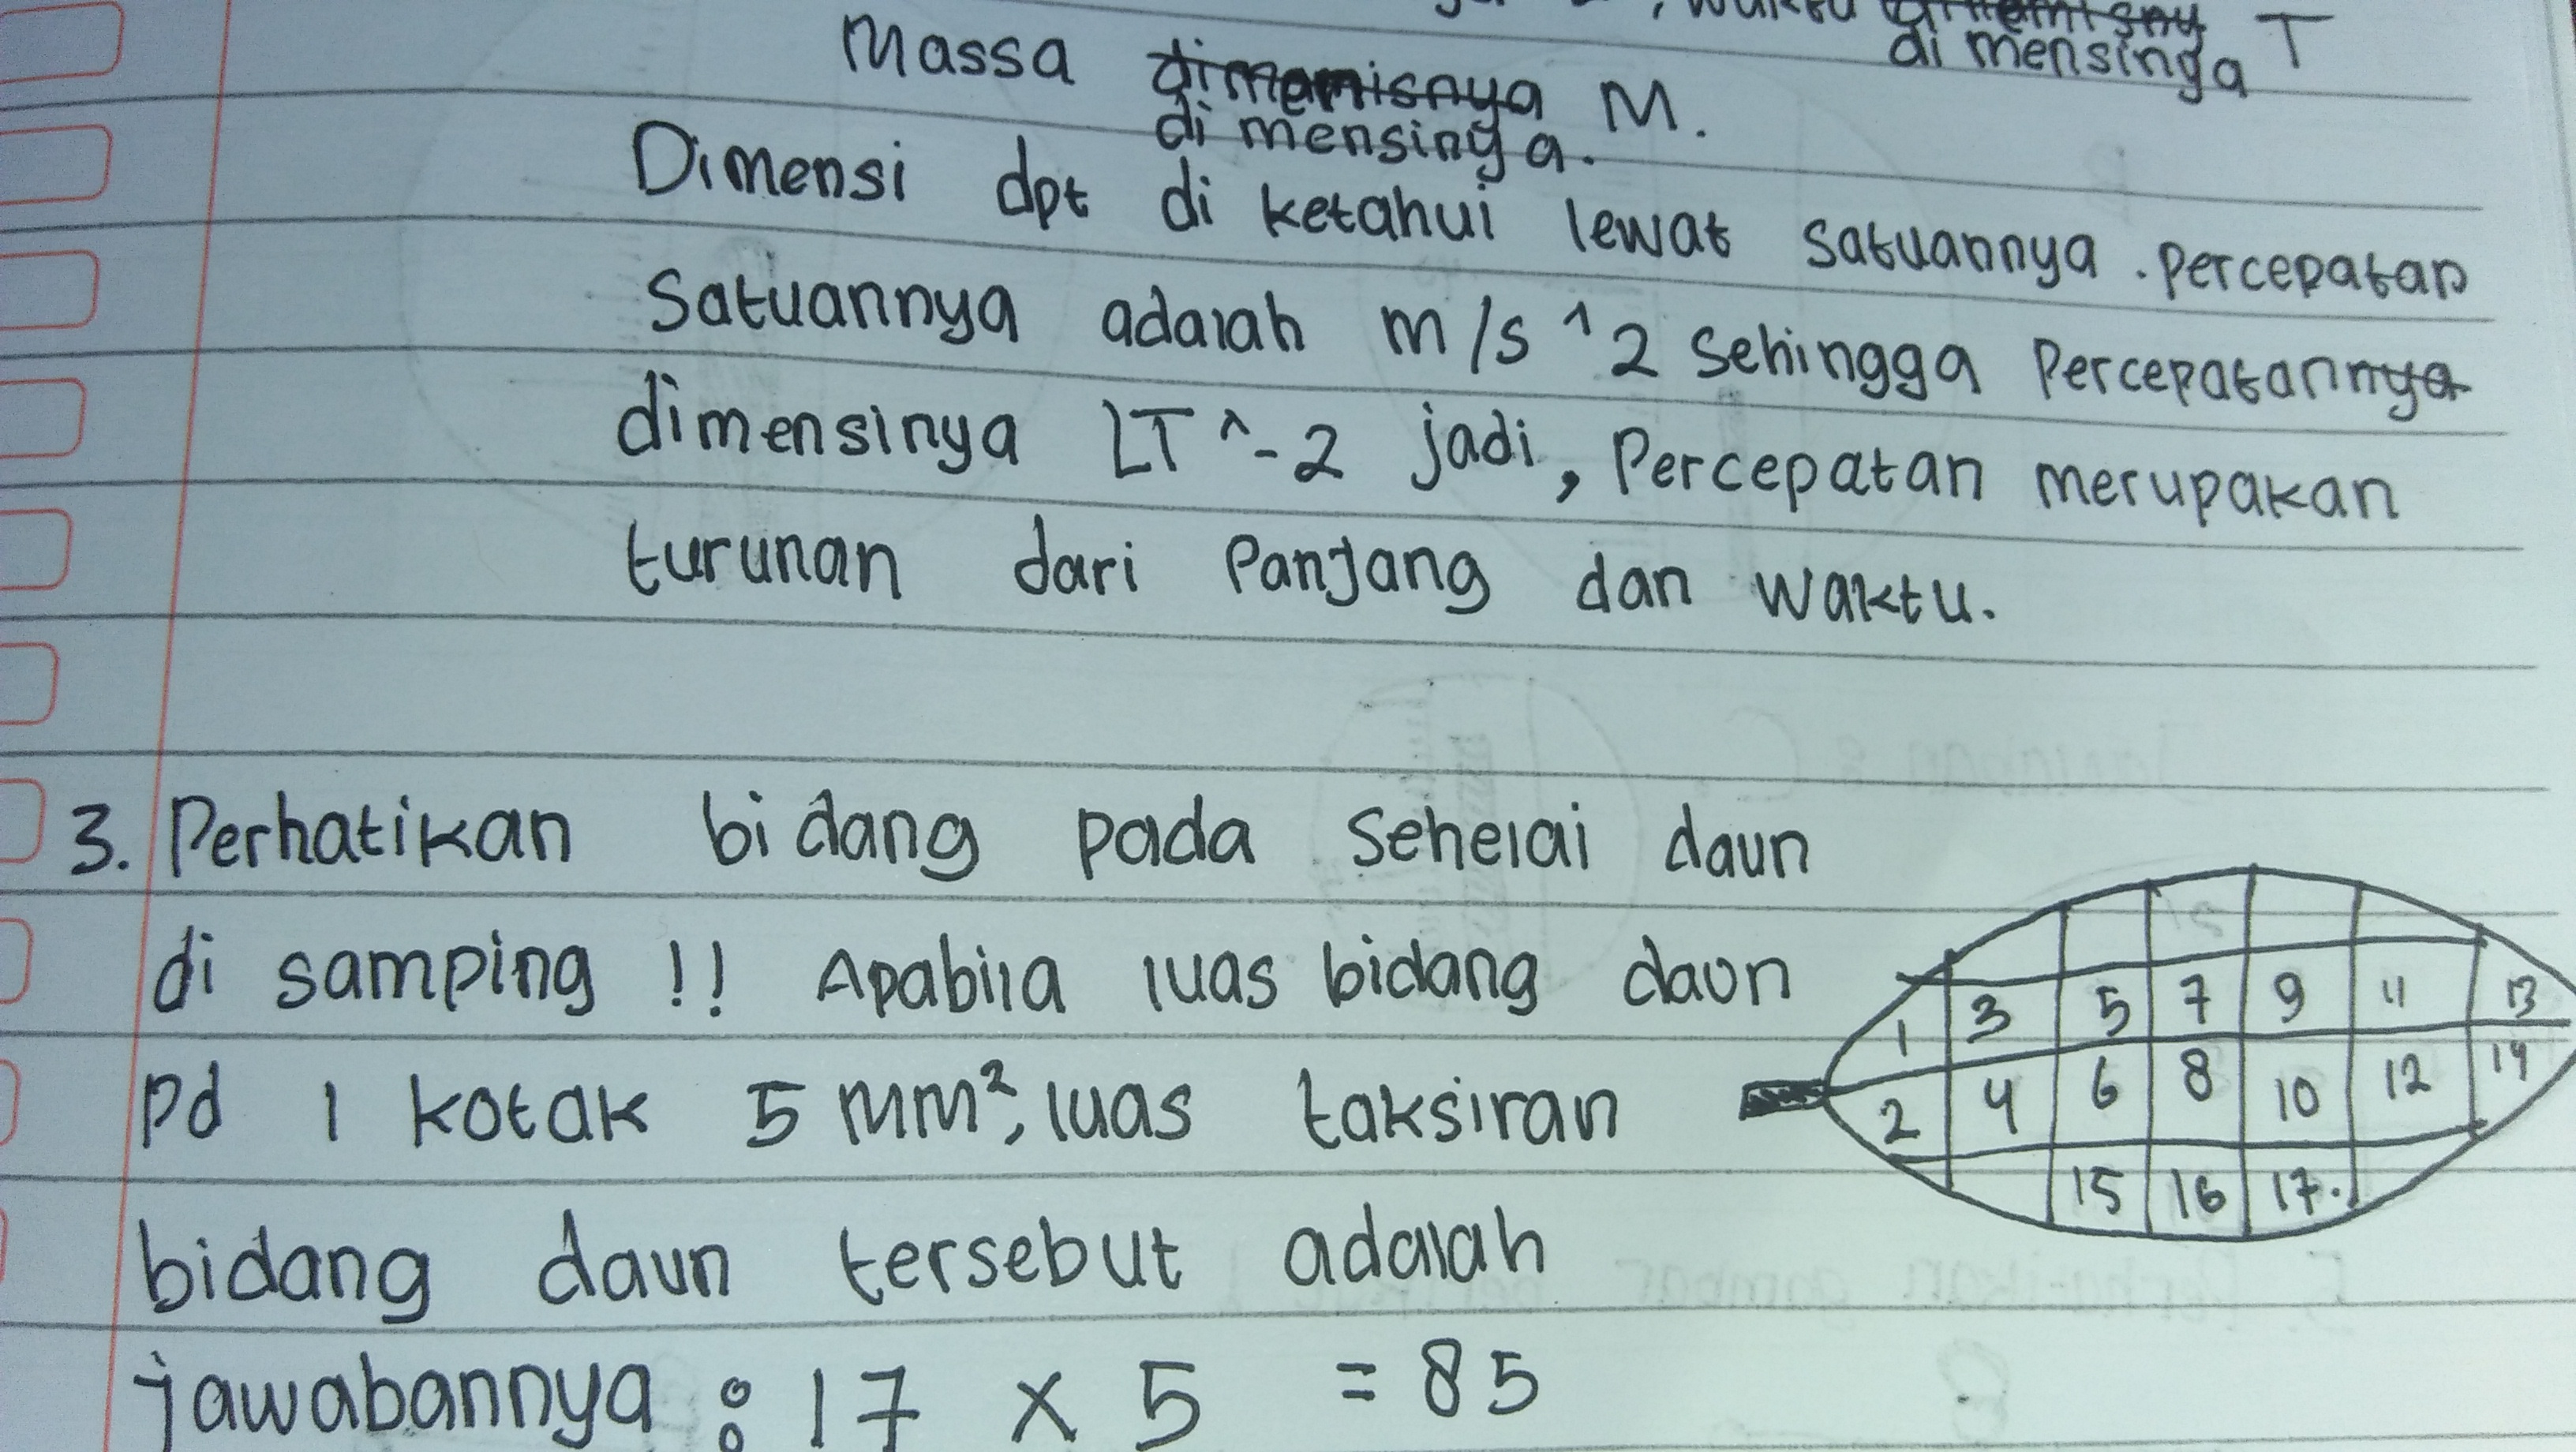 waktu dimemisny T
dimensinga
Massa dimemisnya M.
dimensinya.
Dimensi dpt di ketahui lewat satuannya. percepatan
Satuannya adalah m/s ^2 Sehingga Percepatannya
dimensinya LT ^-2 jadi, Percepatan merupakan
turunan dari Panjang dan waktu.
3. Perhatikan bidang pada sehelai daun
di samping !! Apabila luas bidang daun
Pd 1 kotak 5 mm², luas taksiran
bidang daun tersebut adalah
jawabannya : 17 x 5 = 85
3 5 7 9 11 13
1
4 6 8 10 12 14
2
15 16 17.